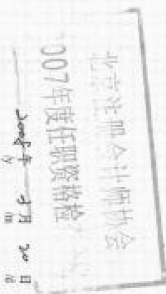 北京注册会计师协会
2007年度任职资格检
2008年 月 20日
y m d